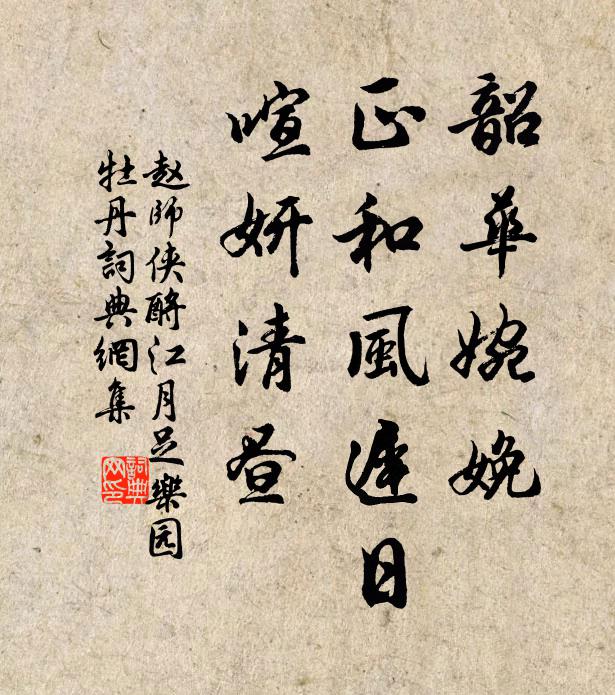 韶華婉娩
正和風遲日
喧妍清昼
赵師侠酹江月足樂园
牡丹詞典網集
詞典網印